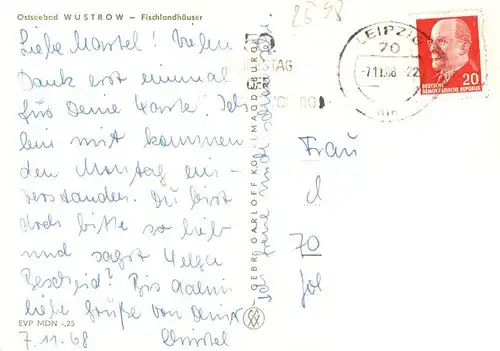 Ostseebad WUSTROW – Fischlandhäuser
Liebe Martel! Vielen
Dank erst einmal
für Deine Karte. Ich
bin mit kommen-
den Montag ein-
verstanden. Du bist
doch bitte so lieb
und sagst Helga
Bescheid? Bis dahin
liebe Grüße von Deiner
Christel
Ich freue mich schon sehr.
EVP MDN -,25
7.11.68
GEBR. GARLOFF KG. MAGDEBURG
2598
LEIPZIG
70
-7.11.68 -22
STAG
20
DEUTSCHE
DEMOKRATISCHE REPUBLIK
Frau
d
70